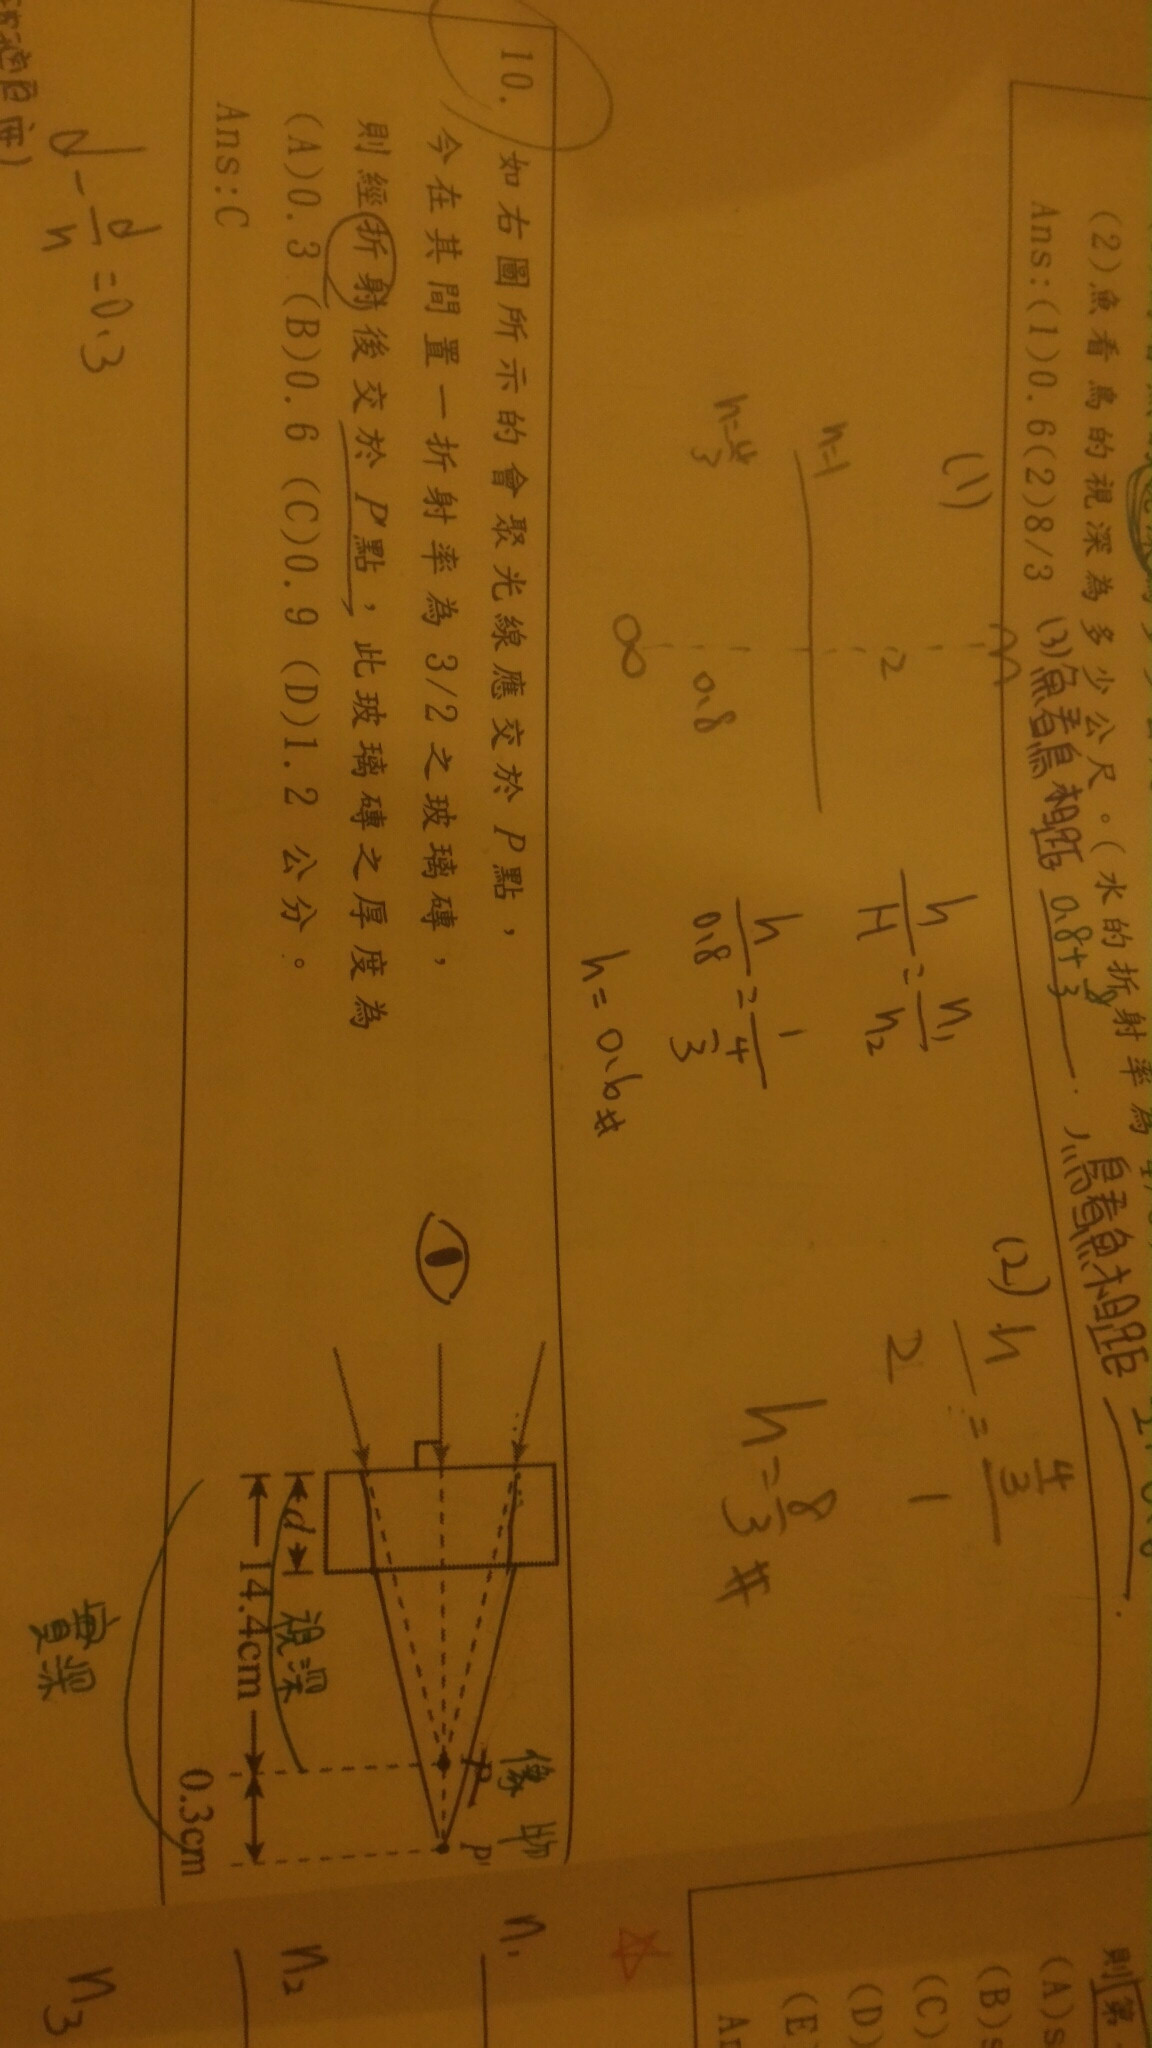 (2)魚看鳥的視深為多少公尺。(水的折射率為
Ans:(1)0.6(2)8/3 (3)魚看鳥相距 0.8+8/3 . 鳥看魚相距
(1)
n=1
n=4/3
2
0.8
h/H = n₁/n₂
h/0.8 = 1/(4/3)
h=0.6#
(2) h/2 = (4/3)/1
h=8/3 #
10. 如右圖所示的會聚光線應交於 P 點,
今在其間置一折射率為 3/2 之玻璃磚,
則經折射後交於 P'點,此玻璃磚之厚度為
(A)0.3 (B)0.6 (C)0.9 (D)1.2 公分。
Ans:C
像 物
P P'
d
視深
14.4cm
0.3cm
實深
d - d/n = 0.3
n₁
n₂
n₃
則第
(A)s
(B)s
(C)
(D)
(E